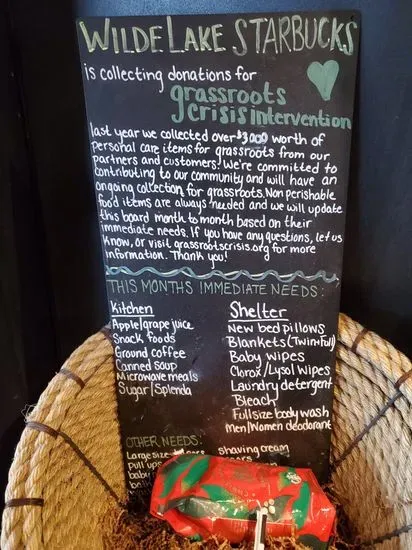 WILDE LAKE STARBUCKS
is collecting donations for
grassroots
crisis intervention
last year we collected over $3000 worth of
personal care items for grassroots from our
partners and customers. We're committed to
contributing to our community and will have an
ongoing collection for grassroots. Non perishable
food items are always needed and we will update
this board month to month based on their
immediate needs. If you have any questions, let us
know, or visit grassrootscrisis.org for more
information. Thank you!
THIS MONTHS IMMEDIATE NEEDS:
Kitchen
Apple/grape juice
Snack foods
Ground coffee
Canned soup
Microwave meals
Sugar/Splenda
Shelter
New bed pillows
Blankets (Twin+Full)
Baby wipes
Clorox/Lysol Wipes
Laundry detergent
Bleach
Full size body wash
Men/Women deodorant
OTHER NEEDS:
Large size
pull ups
baby
shaving cream